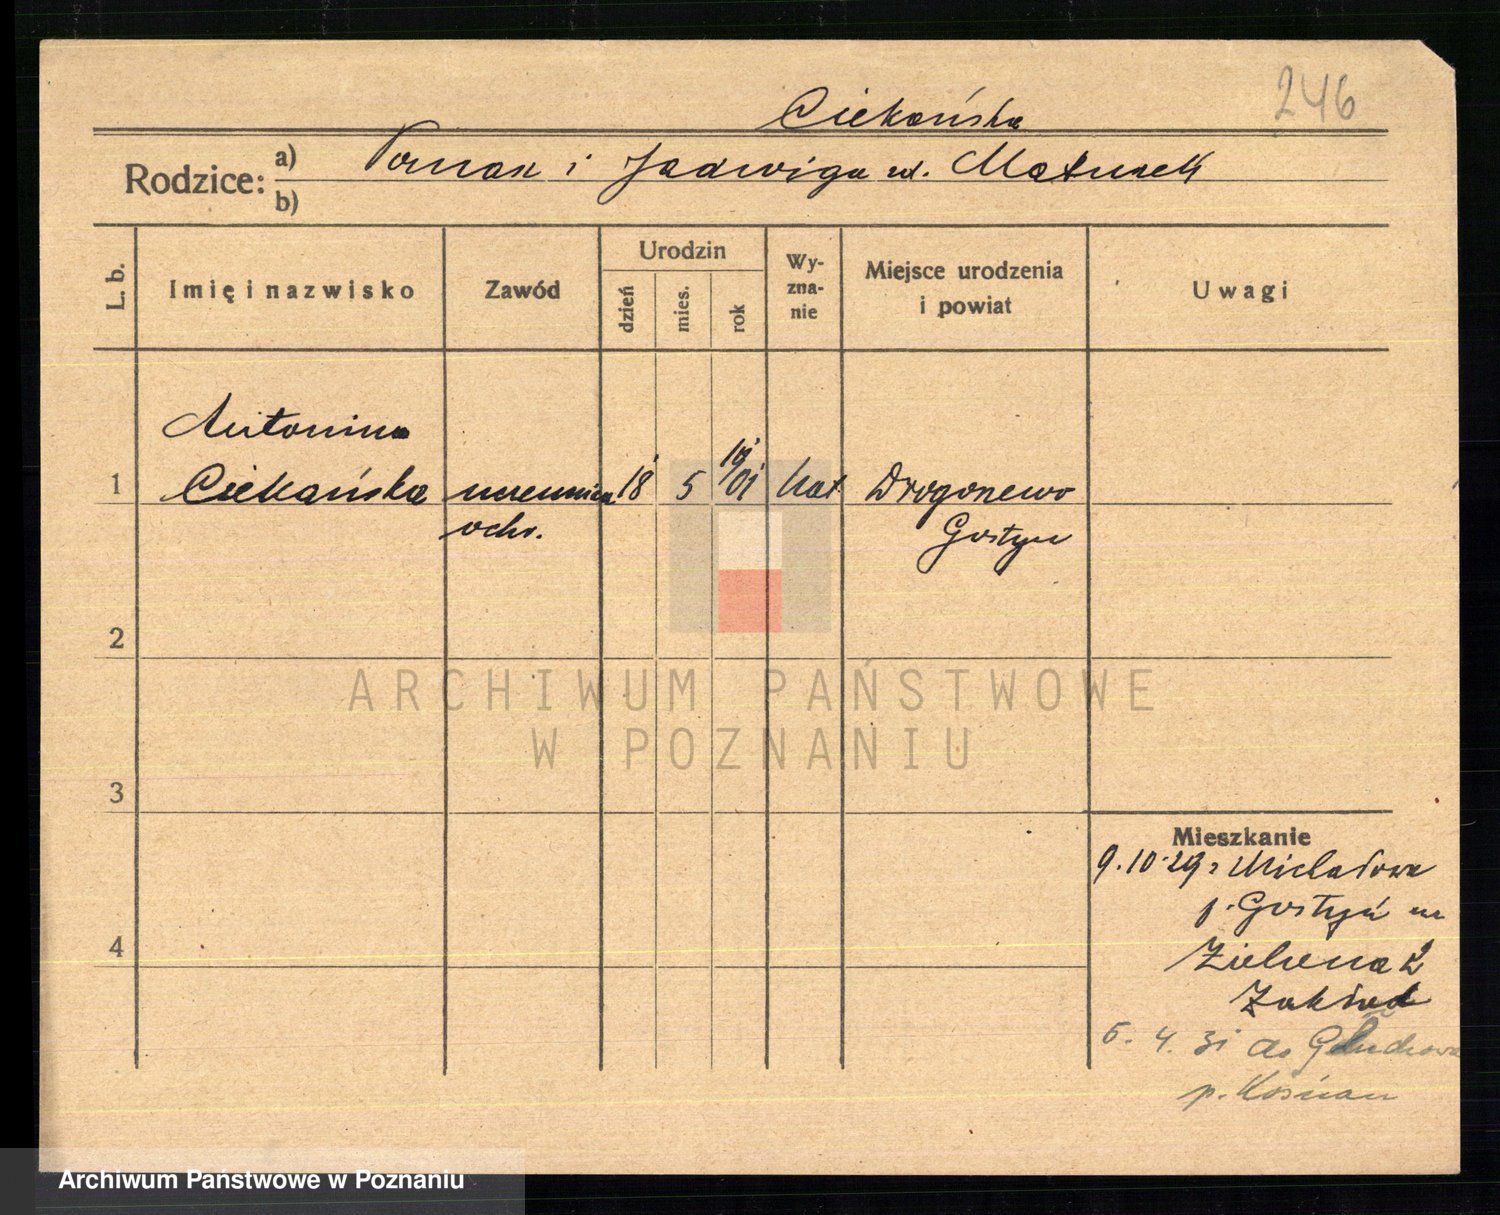 246
Ciekańska
Rodzice: a) Tomasz i Jadwiga ud. Matuszek
b)
L. b.
Imię i nazwisko
Zawód
Urodzin
dzień
mies.
rok
Wy-
zna-
nie
Miejsce urodzenia
i powiat
Uwagi
Antonina
1 Ciekańska uczennica 18 5 19/01 kat Drogoszewo
ochr. Gostyń
2
ARCHIWUM PAŃSTWOWE
W POZNANIU
3
Mieszkanie
9.10.29 z Michałowa
p. Gostyń na
4 Zielona 2
Zakład
5. 4. 31 do Głuchowa
p. Kościan
Archiwum Państwowe w Poznaniu